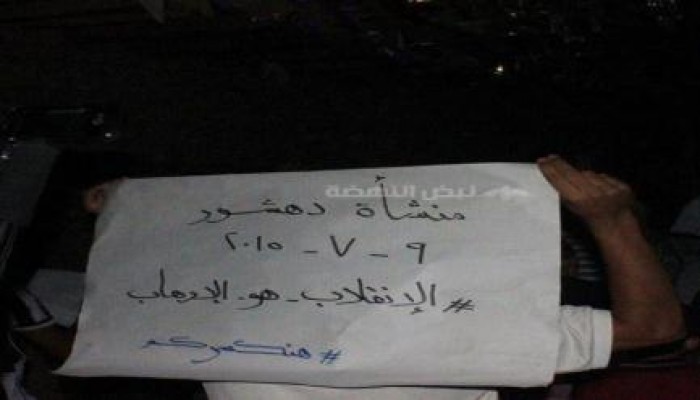 نبض النهضة
منشأة دهشور
٩ - ٧ - ٢٠١٥
#الإنقلاب_هو_الإرهاب
#هنكمركم